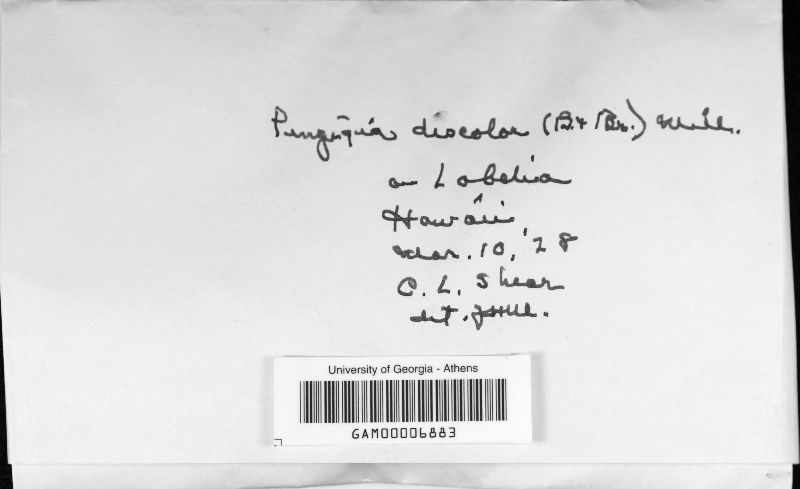 Pengiqia discolor (B. & Br.) Mill.
on Lobelia
Hawaii
Mar. 10, '28
C. L. Shear
det. JHM.
University of Georgia - Athens
GAM00006883